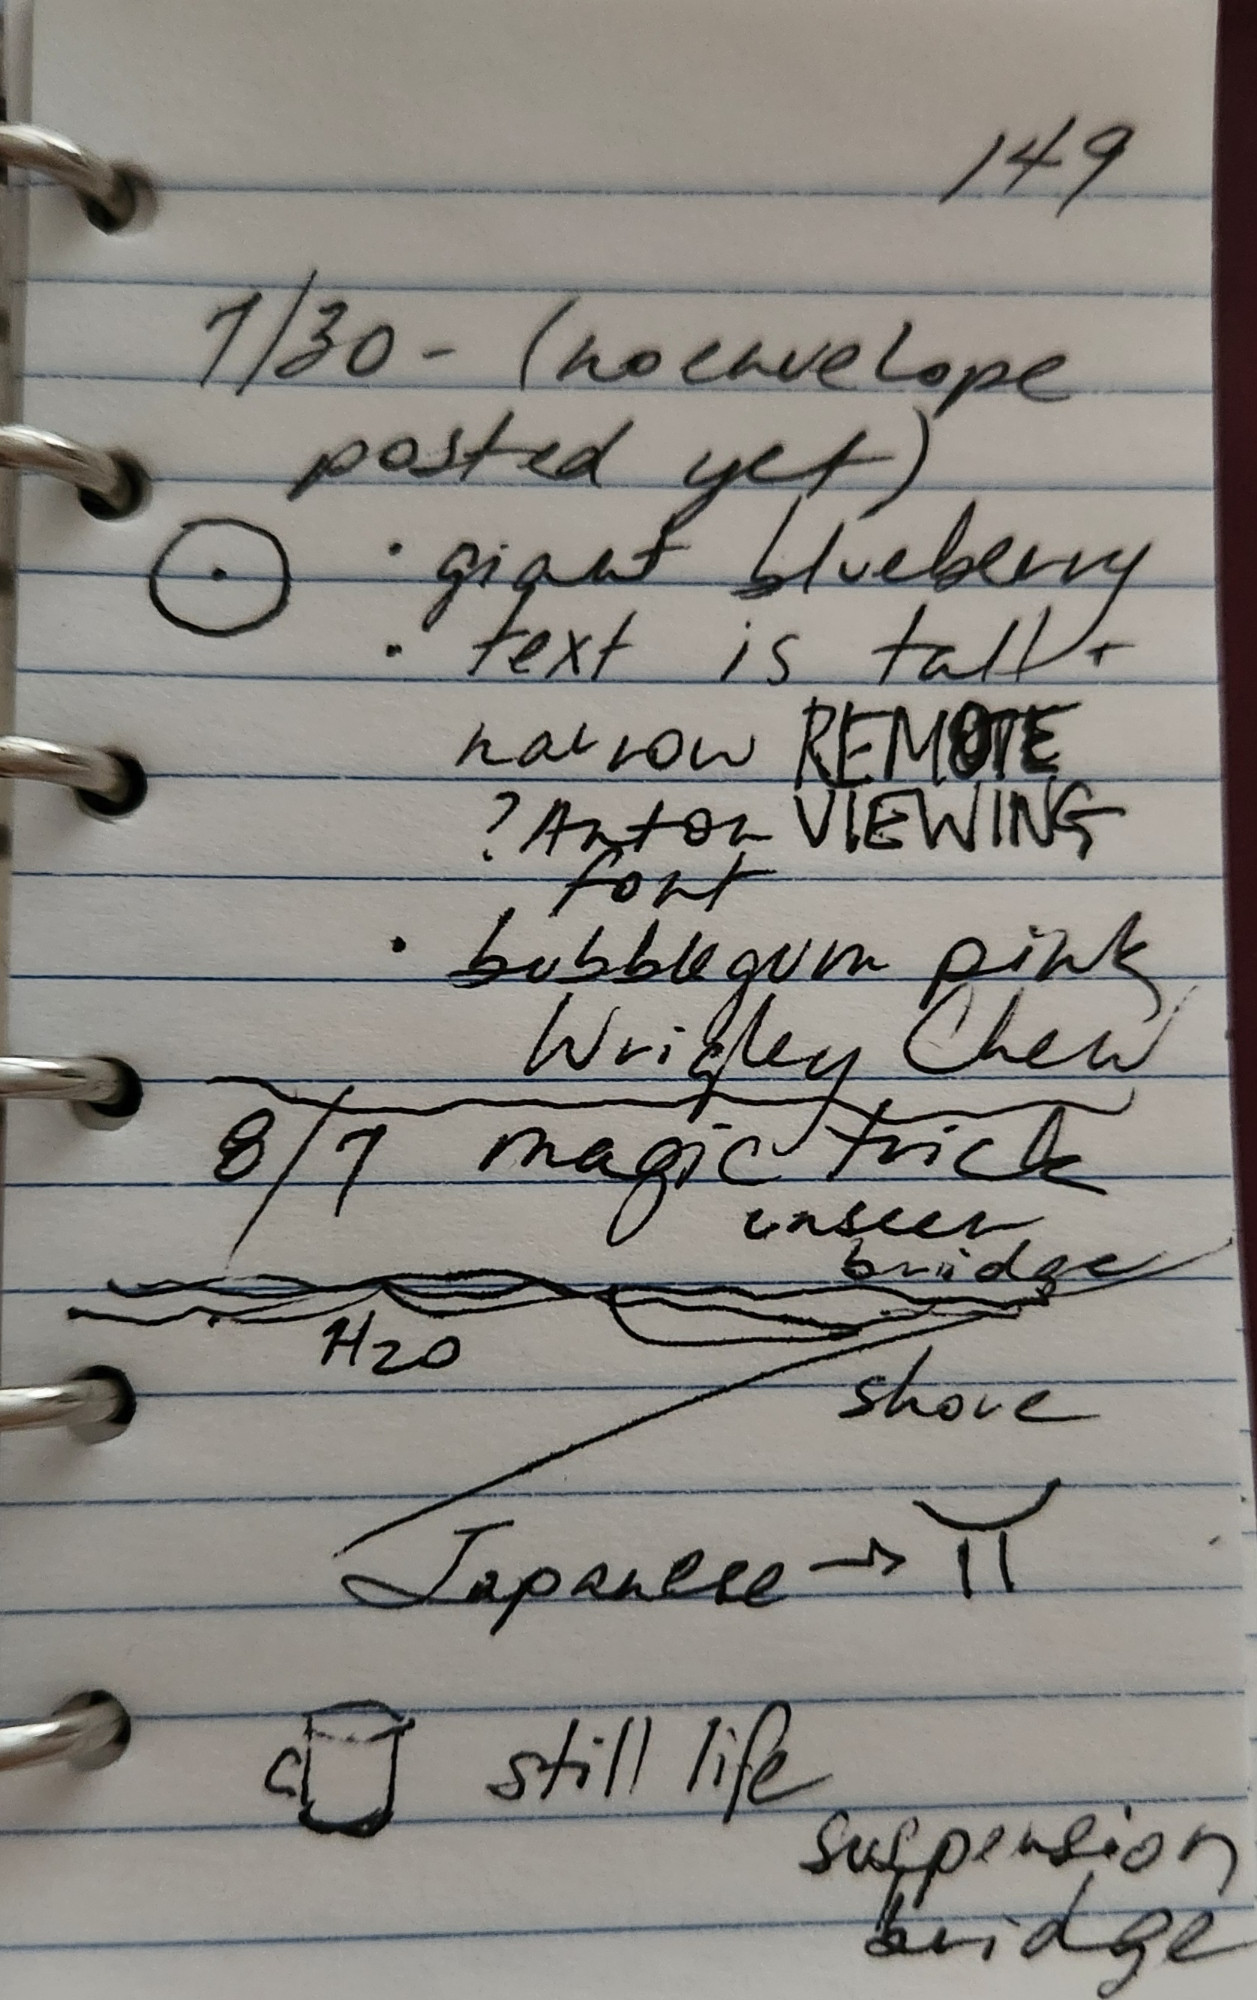 149
7/30 - (no envelope
posted yet)
• giant blueberry
• text is tall +
narrow REMOTE
? Anton VIEWING
font
• bubblegum pink
Wrigley Chew
8/7 magic trick
unseen
bridge
H2O
shore
Japanese →
still life
suspension
bridge